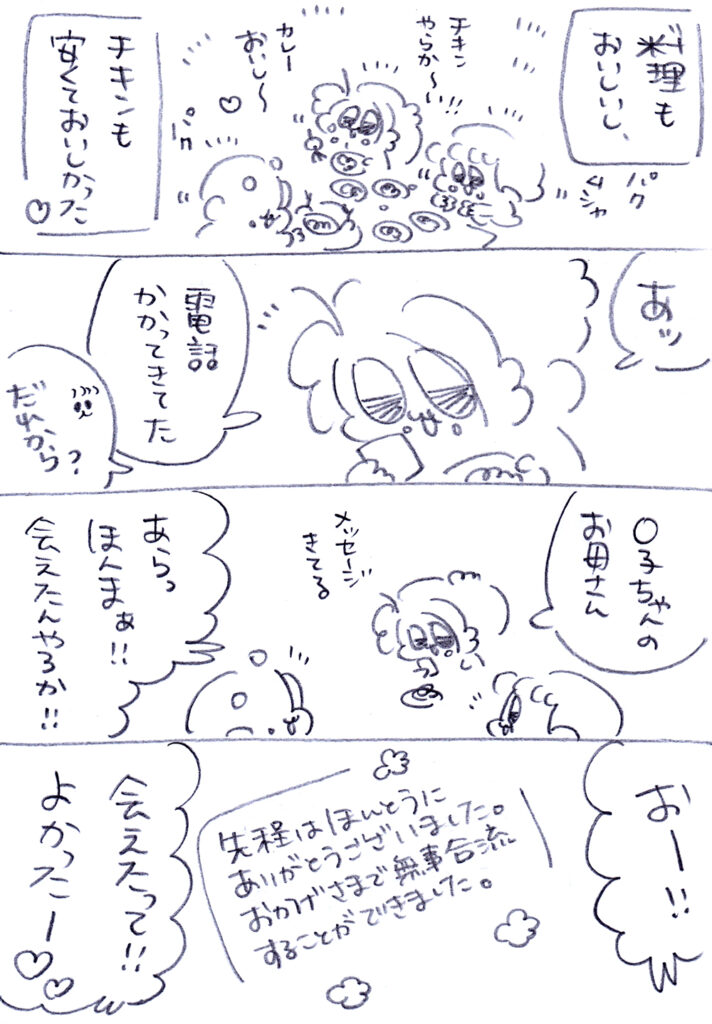 料理も
おいしいし、
パク
ムシャ
チキン
やらか〜い!!
カレー
おいし〜
チキンも
安くておいしかった♡
あッ
電話
かかってきてた
だれから?
〇子ちゃんの
お母さん
メッセージ
きてる
あらっ
ほんまぁ!!
会えたんやろか!!
おー!!
先程はほんとうに
ありがとうございました。
おかげさまで無事合流
することができました。
会えたって!!
よかったー♡♡